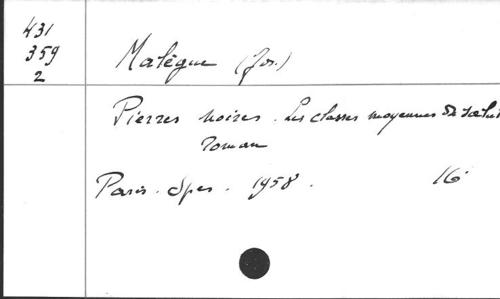 431
359
2
Malègue (Jos.)
Pierres noires. Les classes moyennes du salut
roman
Paris. Spes. 1958.
16°